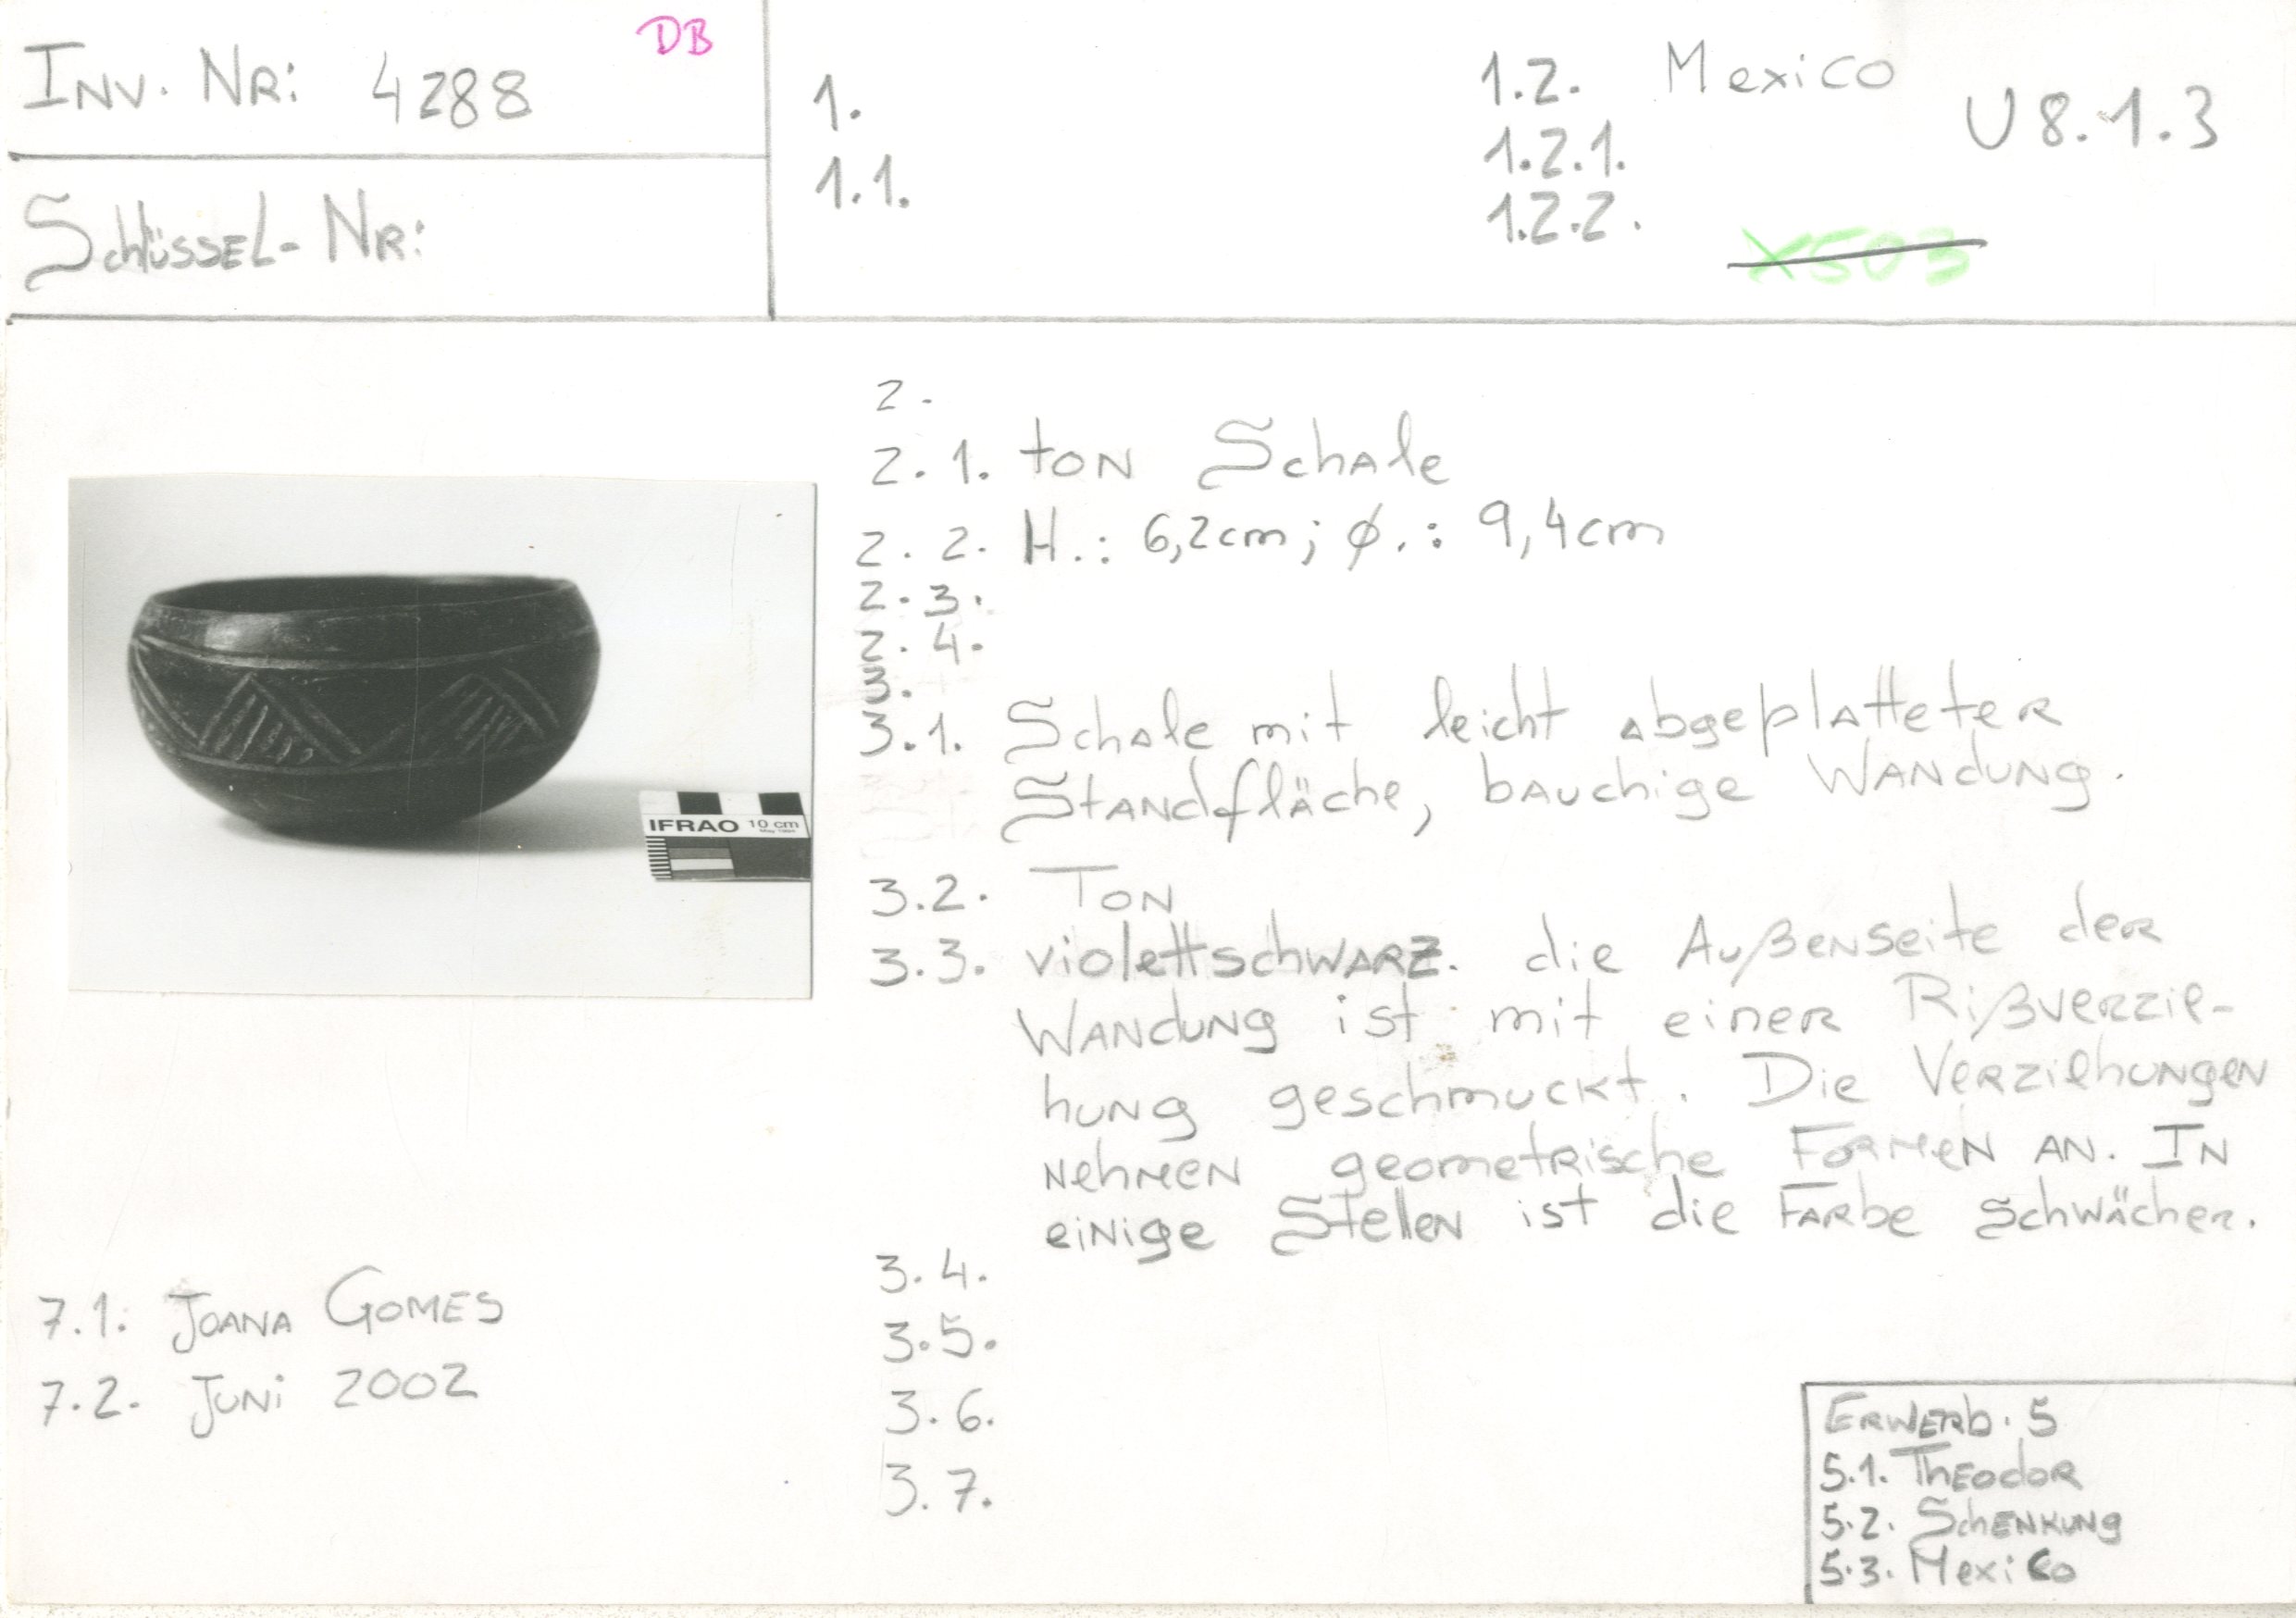 INV. NR: 4288
DB
Schlüssel-NR:
1.
1.1.
1.2. Mexico
1.2.1.
1.2.2.
U 8.1.3
X503
2.
2.1. tON SchAle
2.2. H.: 6,2cm; ø.: 9,4cm
2.3.
2.4.
3.
3.1. SchAle mit leicht AbgeplAtteteR
StANdfläche, bAuchige WANdUNg.
3.2. TON
3.3. violettschWARZ. die AußeNseite deR
WANdUNg ist mit eineR RißveRzie-
hUNg geschmuckt. Die VeRziehUNgeN
NehMeN geometRische FoRMeN AN. IN
eiNige StelleN ist die FARbe SchwächeR.
3.4.
3.5.
3.6.
3.7.
IFRAO 10 cm
May 1994
7.1. JOANA GOMES
7.2. JUNi 2002
ERWERb. 5
5.1. ThEodOR
5.2. SchENKUNg
5.3. MexiCo